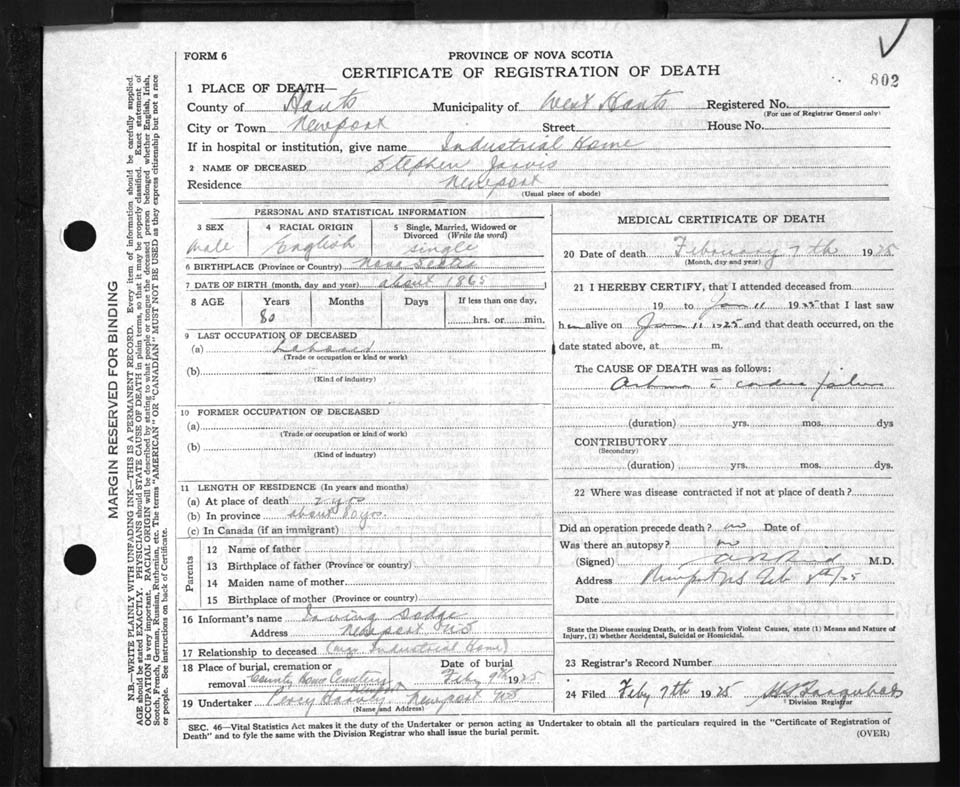 FORM 6
PROVINCE OF NOVA SCOTIA
CERTIFICATE OF REGISTRATION OF DEATH
802
1 PLACE OF DEATH—
County of Hants Municipality of West Hants Registered No.
(For use of Registrar General only)
City or Town Newport Street House No.
If in hospital or institution, give name Industrial Home
2 NAME OF DECEASED Stephen Jarvis
Residence Newport
(Usual place of abode)
PERSONAL AND STATISTICAL INFORMATION
3 SEX 4 RACIAL ORIGIN 5 Single, Married, Widowed or Divorced (Write the word)
Male English Single
6 BIRTHPLACE (Province or Country) Nova Scotia
7 DATE OF BIRTH (month, day and year) about 1865
8 AGE Years Months Days If less than one day,
80 hrs. or min.
9 LAST OCCUPATION OF DECEASED
(a)
(Trade or occupation or kind of work)
(b)
(Kind of industry)
10 FORMER OCCUPATION OF DECEASED
(a)
(Trade or occupation or kind of work)
(b)
(Kind of industry)
11 LENGTH OF RESIDENCE (In years and months)
(a) At place of death 2 yrs
(b) In province about 80 yrs.
(c) In Canada (if an immigrant)
Parents
12 Name of father
13 Birthplace of father (Province or country)
14 Maiden name of mother
15 Birthplace of mother (Province or country)
16 Informant's name Irving Dodge
Address Newport NS
17 Relationship to deceased (Mgr Industrial Home)
18 Place of burial, cremation or removal County Home Cemetery Newport
Date of burial Feby 9th 1925
19 Undertaker Percy Harvey Newport NS
(Name and Address)
MEDICAL CERTIFICATE OF DEATH
20 Date of death February 7th 1925
(Month, day and year)
21 I HEREBY CERTIFY, that I attended deceased from
19 to Jan 11 1925 that I last saw
him alive on Jan 11 1925 and that death occurred, on the
date stated above, at m.
The CAUSE OF DEATH was as follows:
failure
(duration) yrs. mos. dys
CONTRIBUTORY
(Secondary)
(duration) yrs. mos. dys.
22 Where was disease contracted if not at place of death?
Did an operation precede death? no Date of
Was there an autopsy? no
(Signed) M.D.
Address Newport NS Feb 8th/25
Date
State the Disease causing Death, or in death from Violent Causes, state (1) Means and Nature of
Injury, (2) whether Accidental, Suicidal or Homicidal.
23 Registrar's Record Number
24 Filed Feby 7th 1925
Division Registrar
SEC. 46—Vital Statistics Act makes it the duty of the Undertaker or person acting as Undertaker to obtain all the particulars required in the "Certificate of Registration of
Death" and to fyle the same with the Division Registrar who shall issue the burial permit.
(OVER)
MARGIN RESERVED FOR BINDING
N.B.—WRITE PLAINLY WITH UNFADING INK—THIS IS A PERMANENT RECORD. Every item of information should be carefully supplied.
AGE should be stated EXACTLY. PHYSICIANS should STATE CAUSE OF DEATH in plain terms, so that it may be properly classified. Exact statement of
OCCUPATION is very important. RACIAL ORIGIN will be described by stating to what people or tongue the deceased person belonged whether English, Irish,
Scotch, French, German, Russian, Ruthenian, etc. The terms "AMERICAN" OR "CANADIAN" MUST NOT BE USED as they express citizenship but not a race
or people. See instructions on back of Certificate.